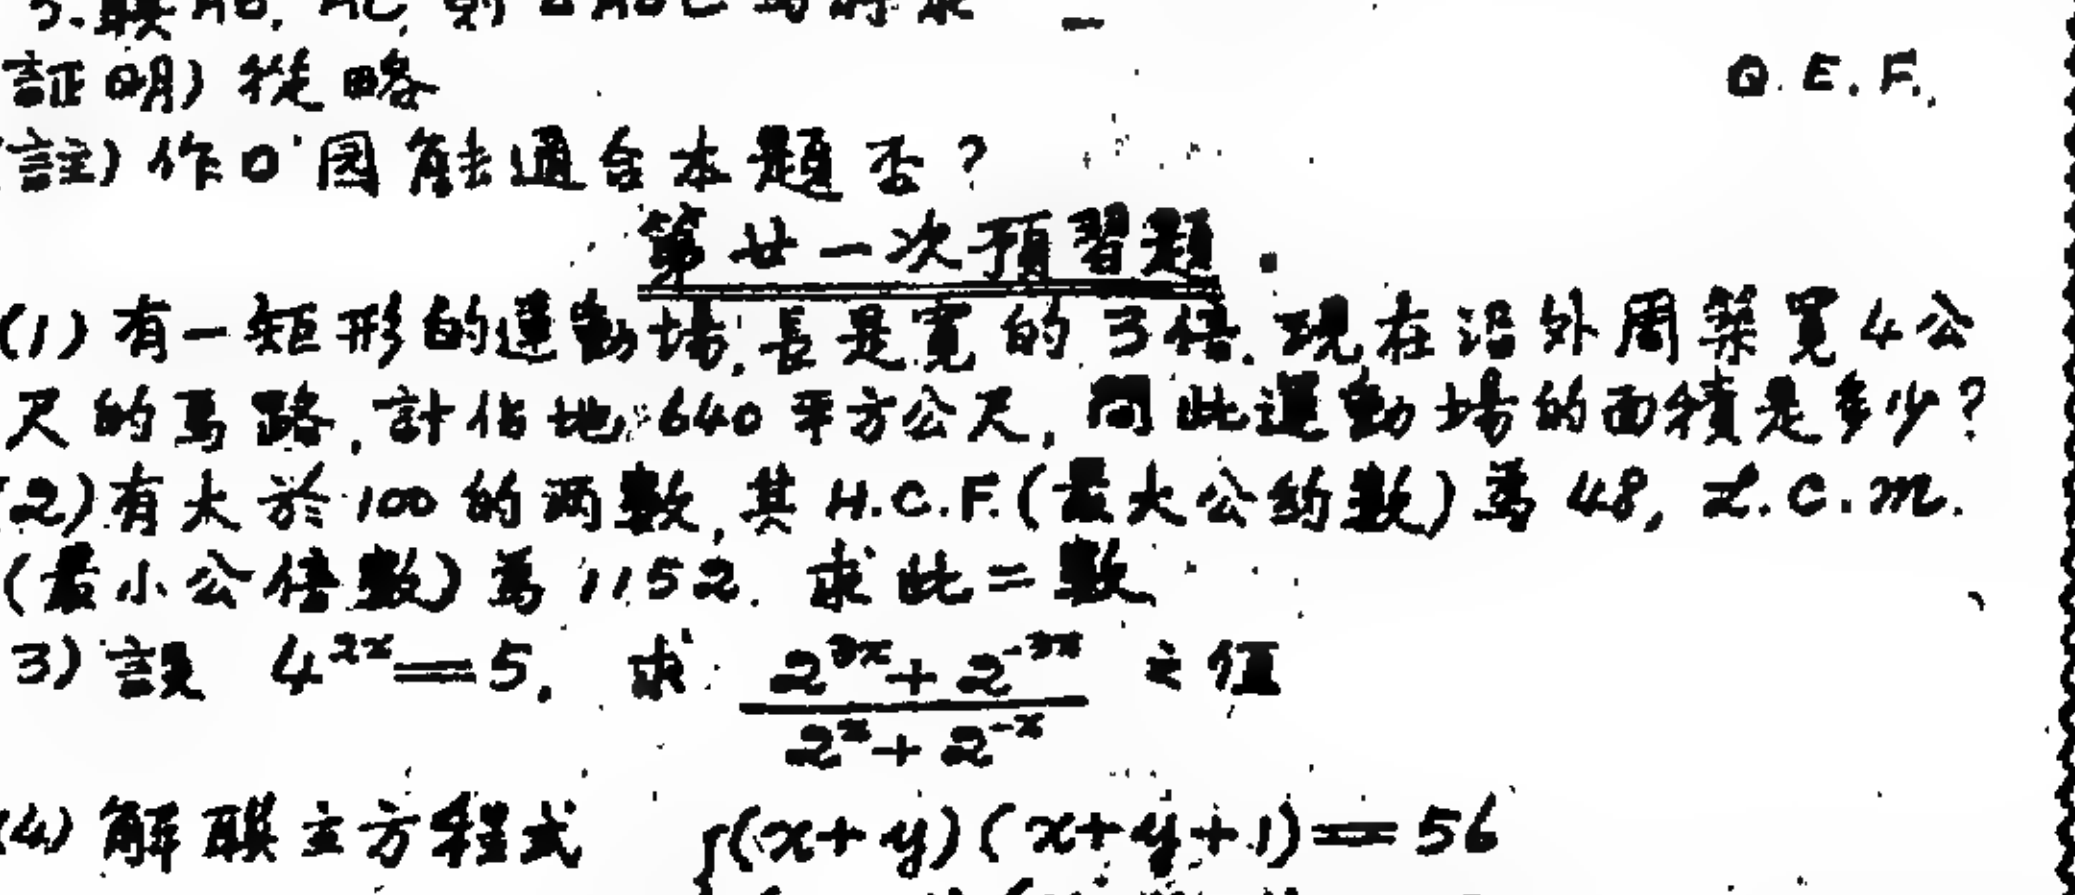 (証明) 從略
Q.E.F.
(註) 作O'圓能適合本題否?
第廿一次預習題
(1) 有一矩形的運動場,長是寬的3倍.現在沿外周築寬4公
尺的馬路,計佔地640平方公尺,問此運動場的面積是多少?
(2) 有大於100的兩數,其H.C.F.(最大公約數)爲48, L.C.M.
(最小公倍數)爲1152. 求此二數
3) 設 4^{2x}=5, 求 \frac{2^{3x}+2^{-3x}}{2^x+2^{-x}} 之值
(4) 解联立方程式 {(x+y)(x+y+1)=56